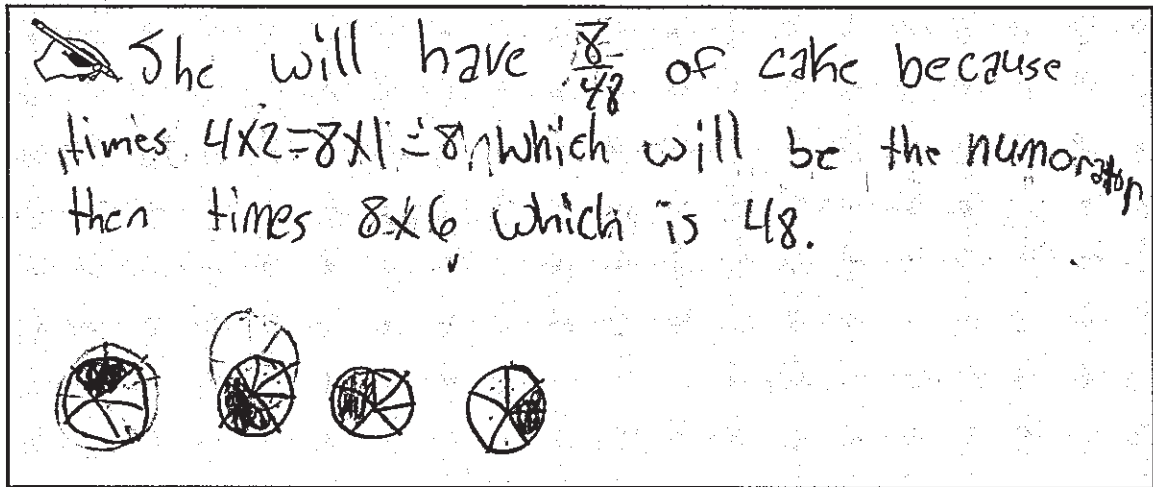 She will have 8/48 of cake because
times 4x2=8x1=8, which will be the numorator
then times 8x6 which is 48.